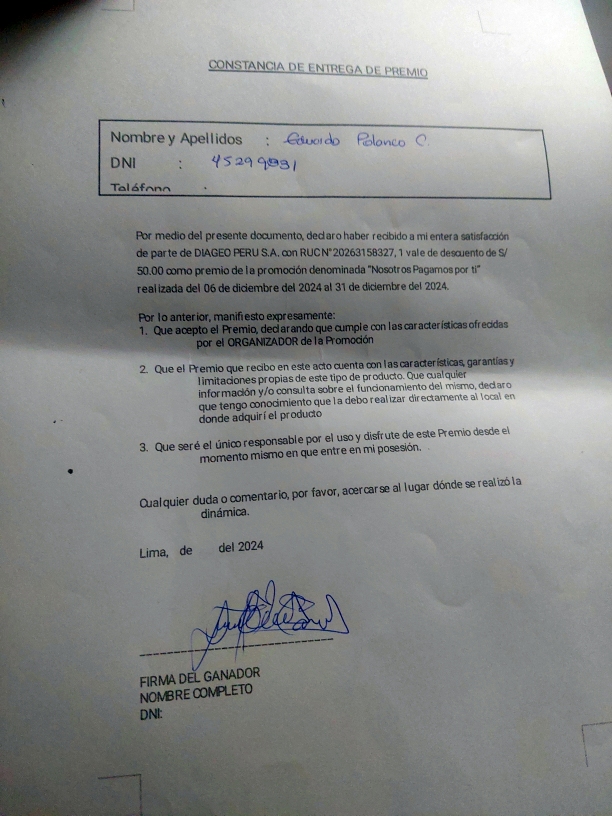 CONSTANCIA DE ENTREGA DE PREMIO
Nombre y Apellidos : Eduardo Polanco C.
DNI : 45299831
Teléfono :
Por medio del presente documento, declaro haber recibido a mi entera satisfacción
de parte de DIAGEO PERU S.A. con RUC N°20263158327, 1 vale de descuento de S/
50.00 como premio de la promoción denominada "Nosotros Pagamos por ti"
realizada del 06 de diciembre del 2024 al 31 de diciembre del 2024.
Por lo anterior, manifiesto expresamente:
1. Que acepto el Premio, declarando que cumple con las características ofrecidas
por el ORGANIZADOR de la Promoción
2. Que el Premio que recibo en este acto cuenta con las características, garantías y
limitaciones propias de este tipo de producto. Que cualquier
información y/o consulta sobre el funcionamiento del mismo, declaro
que tengo conocimiento que la debo realizar directamente al local en
donde adquirí el producto
3. Que seré el único responsable por el uso y disfrute de este Premio desde el
momento mismo en que entre en mi posesión.
Cualquier duda o comentario, por favor, acercarse al lugar dónde se realizó la
dinámica.
Lima, de del 2024
FIRMA DEL GANADOR
NOMBRE COMPLETO
DNI: